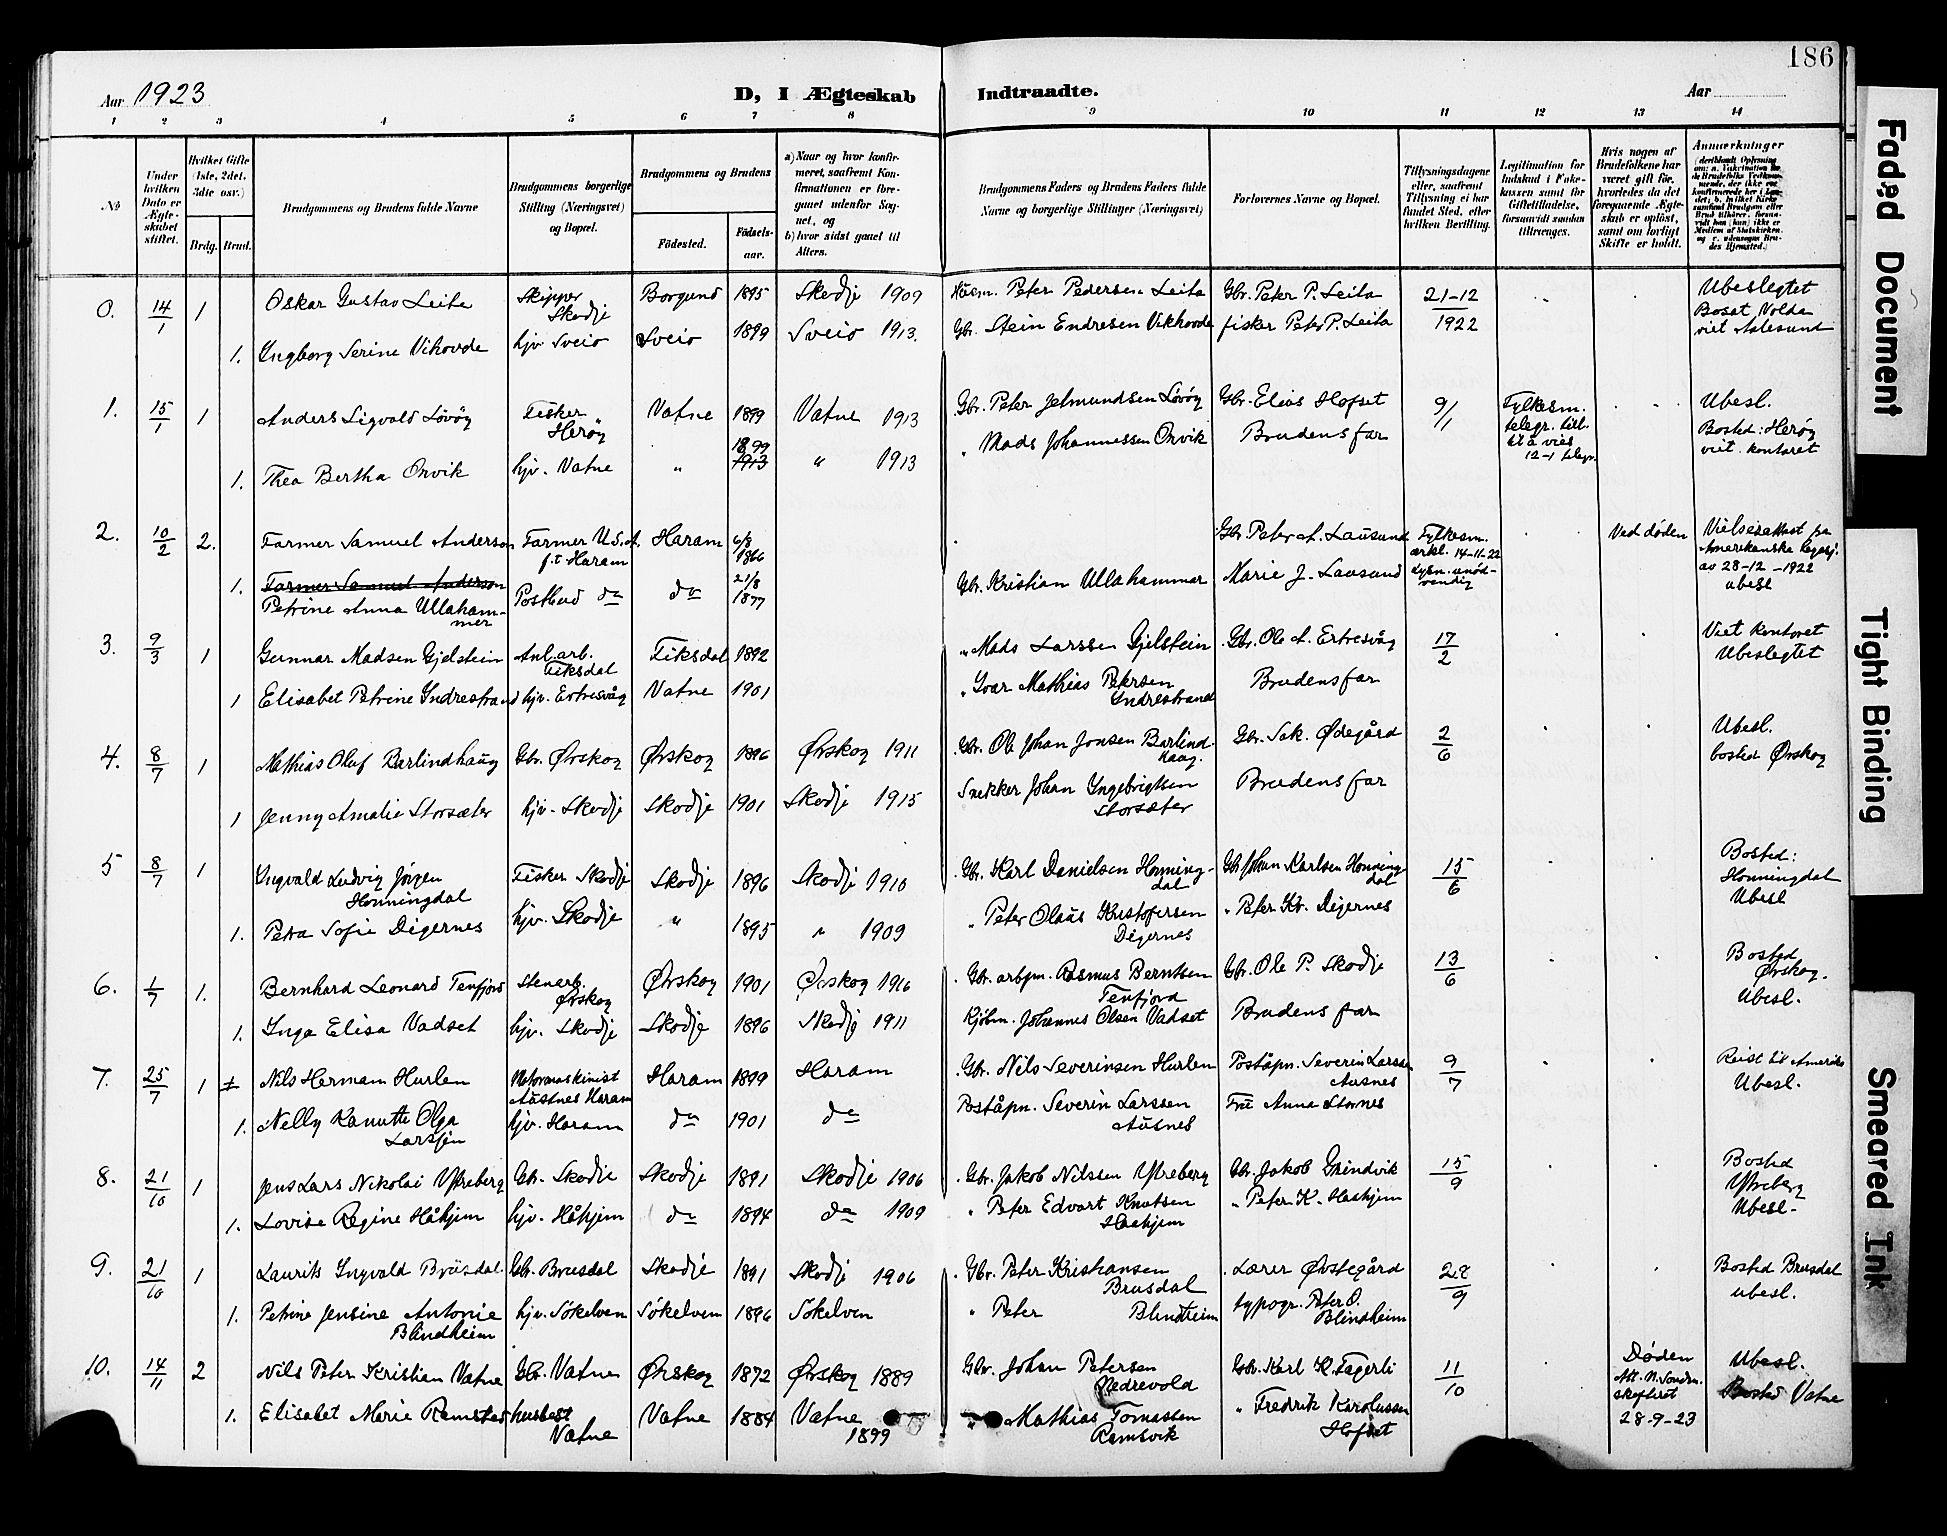 186
Aar 1923
D, I Ægteskab Indtraadte.
Aar
1 2 3 4 5 6 7 8 9 10 11 12 13 14
No
Under hvilken Dato er Ægteskabet stiftet.
Hvilket Gifte (1ste, 2det, 3die osv.)
Brdg. Brud.
Brudgommens og Brudens fulde Navne
Brudgommens borgerlige Stilling (Næringsvei) og Bopæl.
Brudgommens og Brudens
Fødested. Fødselsaar.
a) Naar og hvor konfirmeret, saafremt Konfirmationen er foregaaet udenfor Sognet, og
b) hvor sidst gaaet til Alters.
Brudgommens Faders og Brudens Faders fulde Navne og borgerlige Stillinger (Næringsvei)
Forlovernes Navne og Bopæl.
Tillysningsdagene eller, saafremt Tillysning ei har fundet Sted, efter hvilken Bevilling.
Legitimation for Indskud i Enkekassen samt for Giftetilladelse, forsaavidt saadan tiltrænges.
Hvis nogen af Brudefolkene har været gift før, hvorledes da det foregaaende Ægteskab er opløst, samt om lovligt Skifte er holdt.
Anmærkninger
0. 14/1 1 Oskar Gustav Leite Skipper Skodje Borgund 1895 Skodje 1909 Husm. Peter Pedersen Leite Gbr. Peter P. Leite 21-12 1922 Ubeslegtet
Bosat Volda
viet Aalesund
1. Yngborg Serine Vihovde hjv Sveio Sveio 1899 Sveio 1913. Gbr. Stein Endresen Vikhovde fisker Peter P. Leite
1. 15/1 1 Anders Sigvald Løvøy Fisker Herøy Vatne 1899 Vatne 1913 Gbr. Peter Jetmundsen Løvøy Gbr. Elias Hofset 9/1 Fylkesm. telegr. till. til å vies 12-1 telegr. Ubesl.
Bosted: Herøy
viet kontoret
1. Thea Bertha Orvik hjv. Vatne " 1899 1913 " 1913 " Mads Johannessen Orvik Brudens far
2. 10/2 2. Farmer Samuel Anderson Farmer U.S.A. f.t Haram Haram 6/8 1866 Gbr Peter A. Lausund Fylkesm. erkl. 14-11-22 Lysn. unødvendig Ved døden Vielsesattest fra
Amerikanske legasj.
av 28-12-1922
ubesl
1. Farmer Samuel Anderson
Petrine Anna Ullahammer Postbud do do 21/8 1877 Gbr. Kristian Ullahammer Marie J. Lausund
3. 9/3 1 Gunnar Madsen Gjelstein Anl. arb. Fiksdal Fiksdal 1892 " Mads Larssen Gjelstein Gbr. Ole A. Ertresvåg 17/2 Viet kontoret
Ubeslegtet
1 Elisabet Petrine Yndrestrand hjv. Ertresvåg Vatne 1901 " Ivar Mathias Petersen Yndrestrand Brudens far
4. 8/7 1 Mathias Oluf Barlindhaug Gbr. Ørskog Ørskog 1896 Ørskog 1911 Gbr. Ole Johan Jonsen Barlindhaug. Gbr. Sak. Ødegård 2/6 Ubesl.
bosted Ørskog
1 Jenny Amalie Storsæter hjv. Skodje Skodje 1901 Skodje 1915 Snekker Johan Yngebrigtsen Storsæter Brudens far
5 8/7 1 Yngvald Ludvig Jørgen Honningdal Fisker Skodje Skodje 1896 Skodje 1910 Gbr. Karl Danielsen Honningdal Gbr Johan Karlsen Honningdal 15/6 Bosted:
Honningdal
Ubesl
1. Petra Sofie Digernes hjv. Skodje " 1895 " 1909 " Peter Olaus Kristofersen Digernes " Peter Kr. Digernes
6. 1/7 1. Bernhard Leonard Tenfjord Stenarb. Ørskog Ørskog 1901 Ørskog 1916 Gbr. arbfm. Rasmus Berntsen Tenfjord Gbr. Ole P. Skodje 13/6 Bosted
Ørskog.
Ubesl.
1. Inga Elisa Vadset hjv. Skodje Skodje 1896 Skodje 1911 Kjøbm. Johannes Olsen Vadset Brudens far
7. 25/7 1 Nils Herman Hurlen Motormaskinist Austnes Haram Haram 1899 Haram Gbr. Nils Severinsen Hurlen Poståpn. Severin Larssen Ausnes 9/7 Reist til Amerika
Ubesl.
1. Nelly Kanutte Olga Larssen hjv. Haram do 1901 do Poståpn. Severin Larssen Ausnes Fru Anna Stornes
8. 21/10 1 Jens Lars Nikolai Ytreberg Gbr. Skodje Skodje 1891 Skodje 1906 Gbr. Jakob Nilssen Ytreberg Gbr. Jakob Grindvik 15/9 Bosted
Ytreberg
Ubesl-
1. Lovise Regine Håhjem hjv. Håhjem do 1894 do 1909 " Peter Edvart Knutsen Haahjem " Peter K. Haahjem
9. 21/10 1 Laurits Ingvald Brusdal Gbr. Brusdal Skodje 1891 Skodje 1906 Gbr. Peter Kristiansen Brusdal Lærer Ørstegård 28/9 Bosted Brusdal
ubesl.
1. Petrine Jensine Antonie Blindheim hjv. Søkelven Søkelven 1896 Søkelven " Peter Blindheim typogr. Peter O. Blindheim
10. 14/11 2 Nils Peter Kristian Vatne Gbr. Vatne Ørskog 1872 Ørskog 1889 Gbr. Johan Petersen Nedrevold Gbr. Karl K. Fagerli 11/10 Døden
skifteret
28-9-23 Ubesl.
Bosted Vatne
1. Elisabet Marie Vatne Vatne 1884 Vatne 1899 " Mathias Tomassen Ramsvik " Fredrik Karolussen Hofset
Faded Document
Tight Binding
Smeared Ink